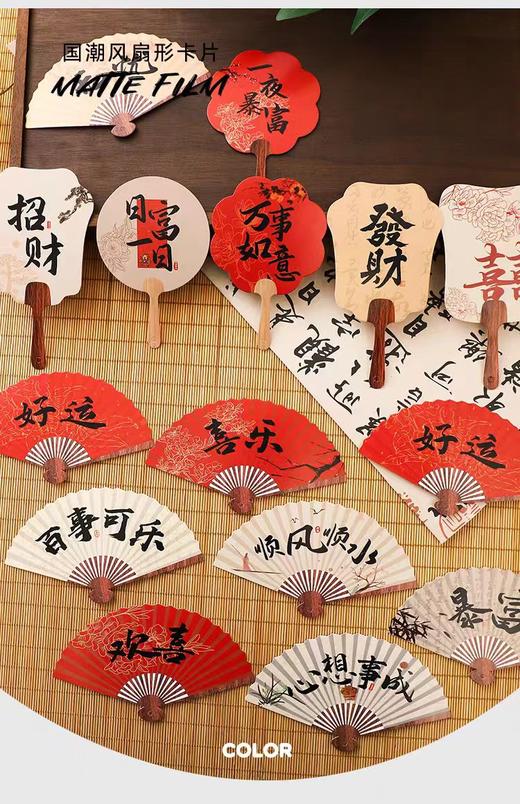 国潮风扇形卡片
MATTE FILM
一夜
暴富
招财
日富
一日
万事
如意
發財
囍
好运
喜乐
好运
百事可乐
顺风顺水
暴富
欢喜
心想事成
COLOR